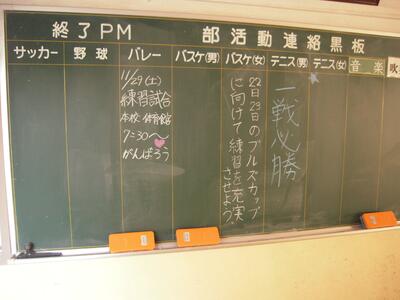 終了PM 部活動連絡黒板
サッカー 野球 バレー バスケ(男) バスケ(女) テニス(男) テニス(女) 音楽 吹
11/29(土)
練習試合
本校 体育館
7:30〜
がんばろう
22日23日のブルズカップ
に向けて練習を充実
させよう!
一戦必勝